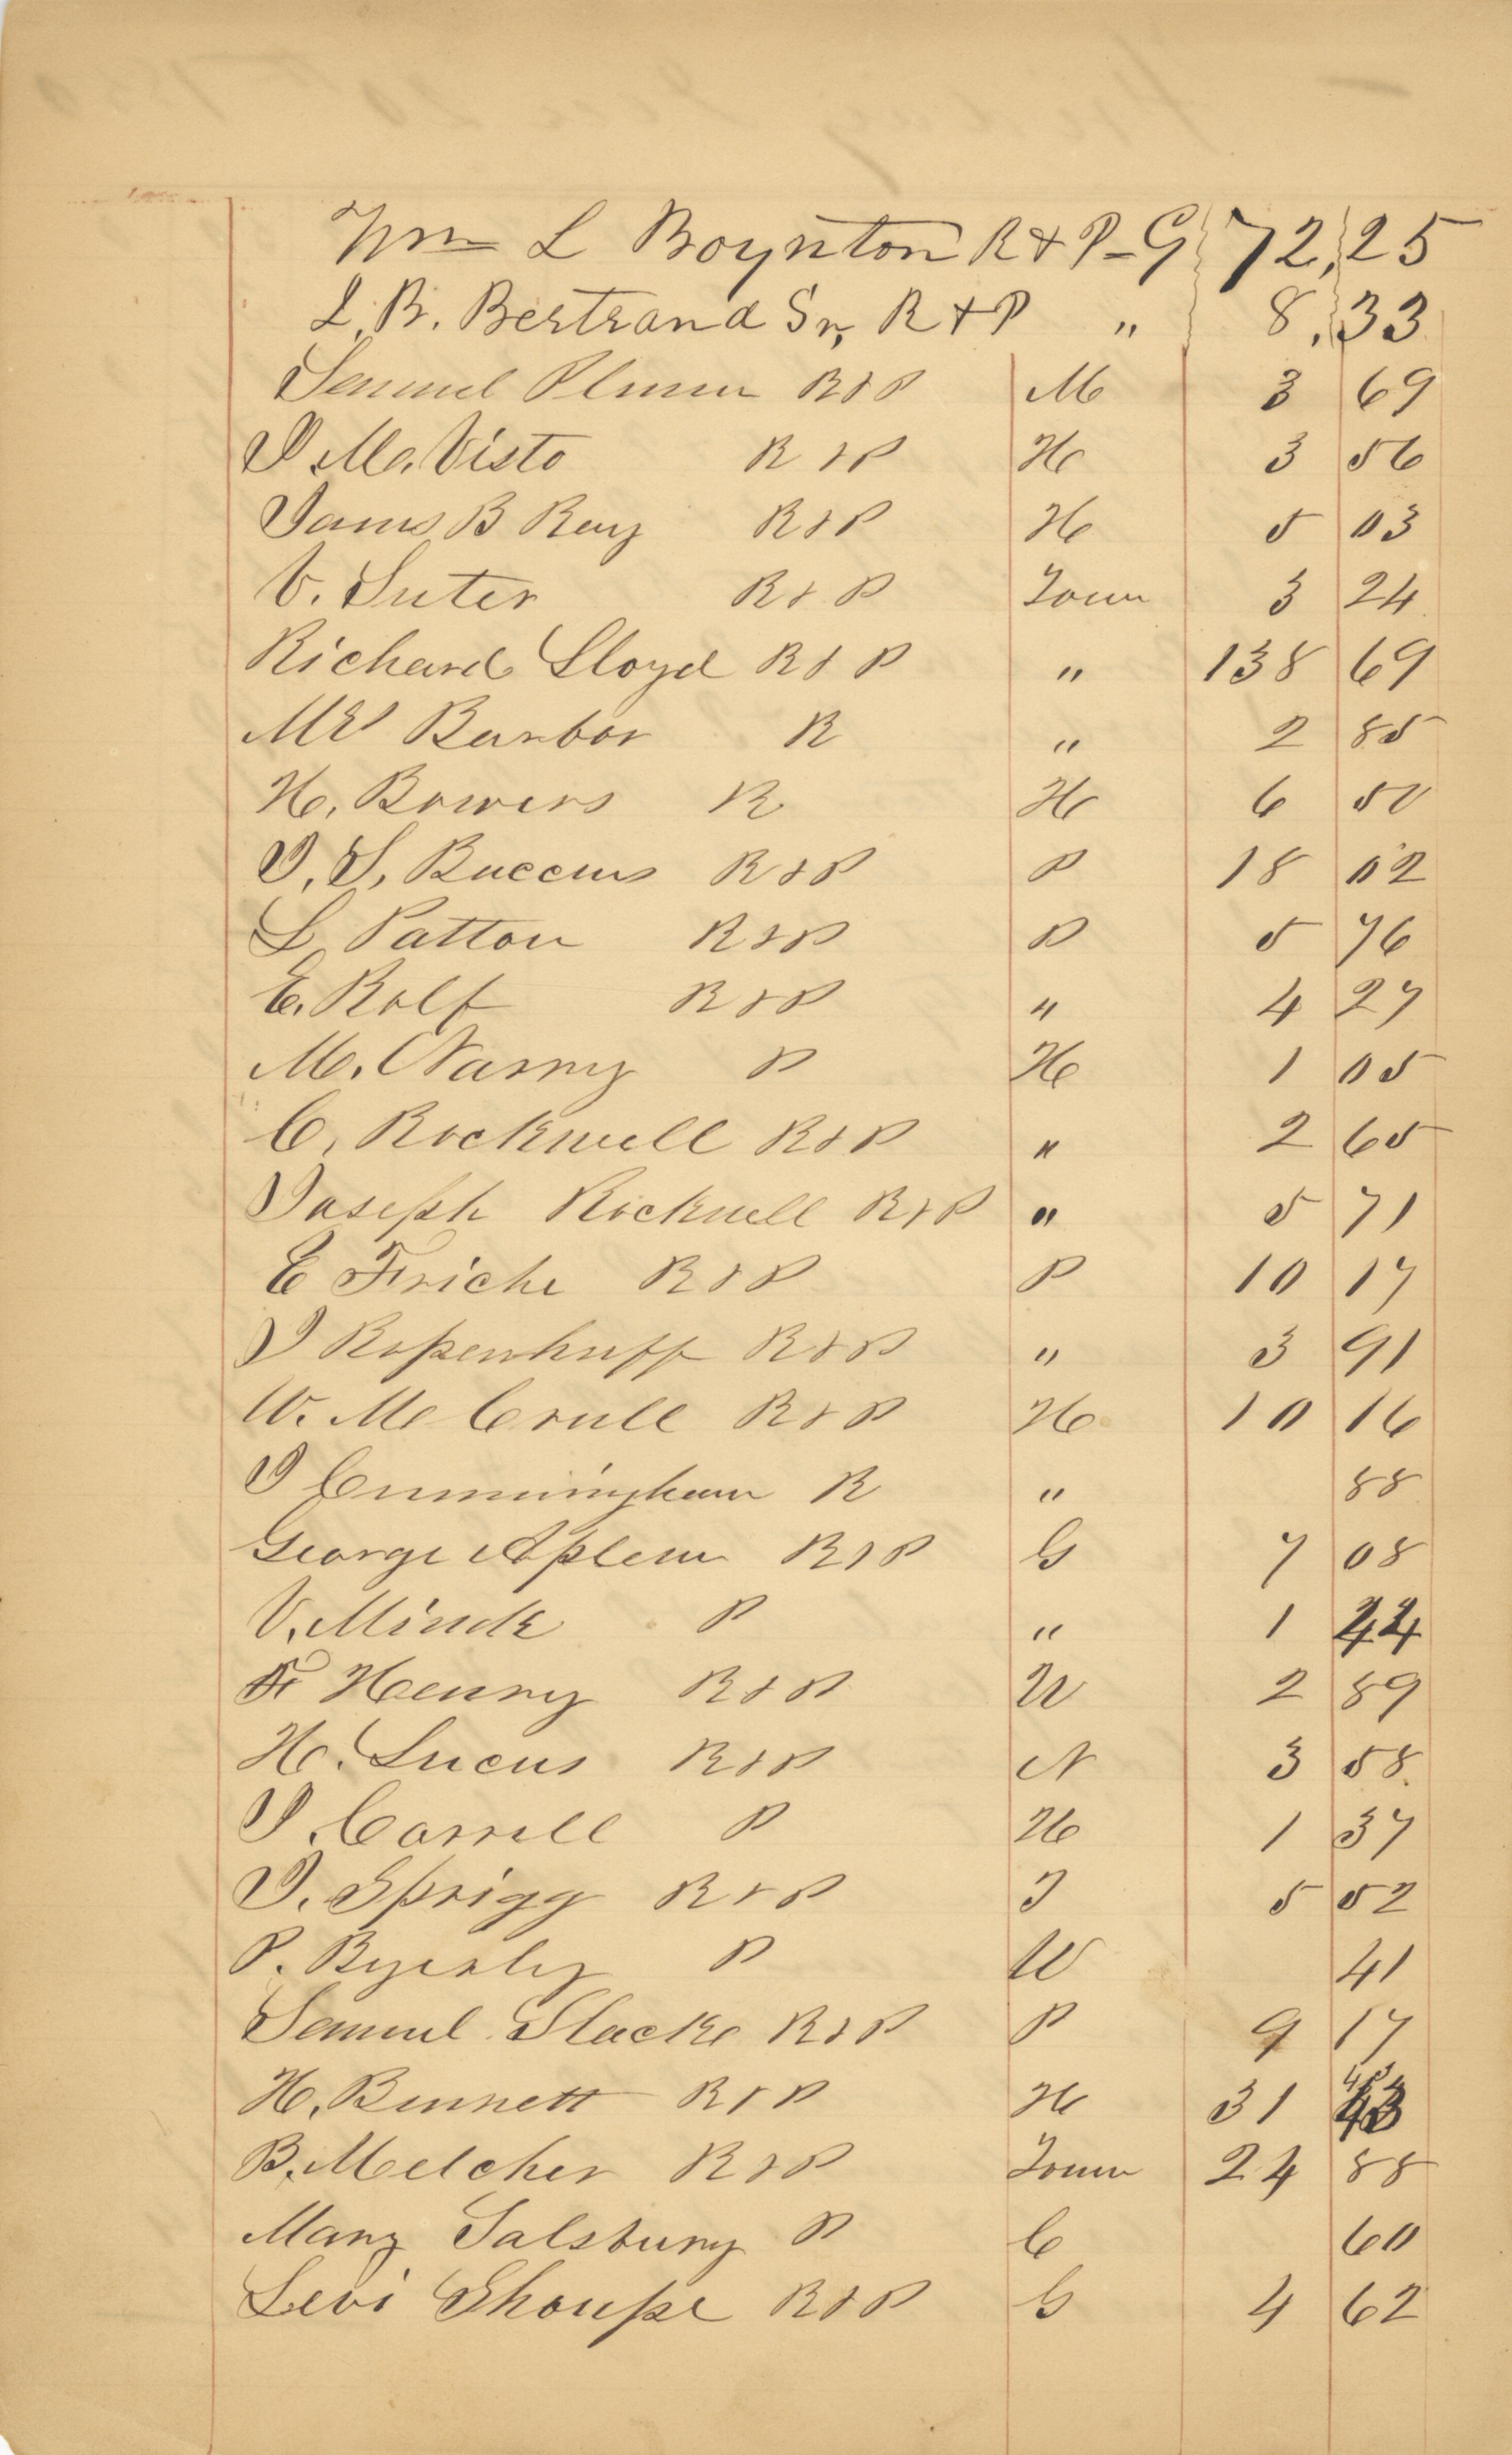 Wm L Boynton R & P - G 72,25
L. B. Bertrand Sr, R & P " 8,33
Samuel Plum R & P M 3 69
J Mc. Visto R & P H 3 56
James B Ray R & P H 5 03
V. Suter R & P Town 3 24
Richard Lloyd R & P " 138 69
Mrs Barbor R " 2 85
H. Bowers R H 6 50
J. S. Buccus R & P P 18 02
L Patton R & P P 5 76
E. Rolf R & P " 4 27
M. Narry P H 1 05
C. Rockwell R & P " 2 65
Joseph Rockwell R & P " 5 71
E Friche R & P P 10 17
J Ropenhuff R & P " 3 91
W. Mc Crull R & P H 10 16
J Cunningham R " 88
George Aplem R & P G 7 08
V. Minck P " 1 44
F Henry R & P W 2 89
H. Lucus R & P N 3 58
J. Carrell P H 1 37
J. Sprigg R & P T 5 52
P. Byerly P W 41
Samuel Slacke R & P P 9 17
H. Bennett R & P H 31 43
B. Melcher R & P Town 24 88
Mary Salsbury P C 60
Levi Shoupe R & P G 4 62